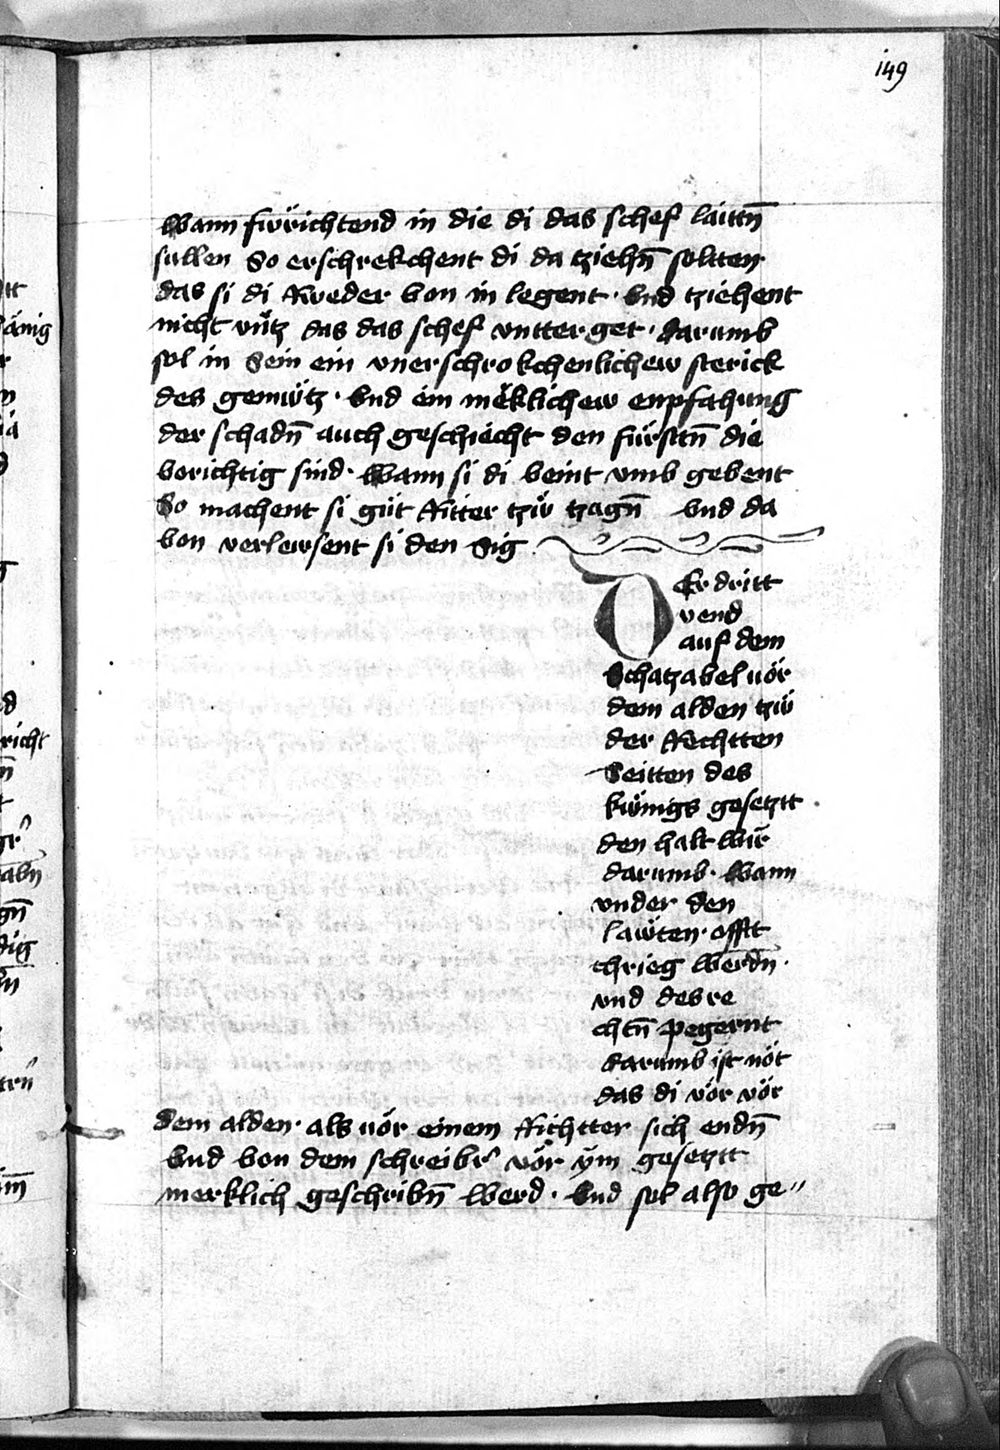 149
Wann fuͤrichtend in die di das schef laittn̄
sullen So erschrekchent di da tziehn̄ soltten
das si di Rueder von in legent · vnd tziehent
nicht vntz das das schef vntter get · darumb
sol in Sein ein vnerschrokchenlichew sterick
des gemuͤtz · vnd ein merklichew enpfahung
der schadn̄ auch geschiecht den fuͤrstn̄ die
vorichtig sind · Wann si di veint vmb gebent
So machent si guͤt Ritter tzuͤ tzagn̄ vnd da
von verlewsent si den Sig
DEr dritt
vend
auf dem
Schatzabel uör
dem alden tzuͤ
der Rechtten
Seitten des
kuͤnigs gesetztt
den halt wir̄
darumb · Wann
vnder den
lawten · offtt
chrieg werdn̄ ·
vnd des re
chtn̄ pegernt
darumb ist nöt
das di vör uör
dem alden · als uör einem Richtter sich endn̄
vnd von dem schreibr̓ vör ÿm gesetztt
merklich geschribn̄ werd · vnd sol also ge〃